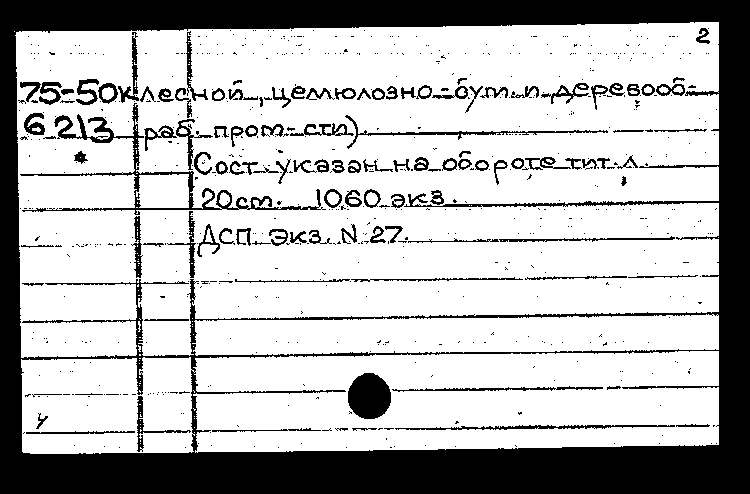 2
75-50к лесной, целлюлозно-бум. и деревооб-
6213 раб. пром-сти)
* Сост. указан на обороте тит. л.
20 cm. 1060 экз.
ДСП. Экз. N 27.